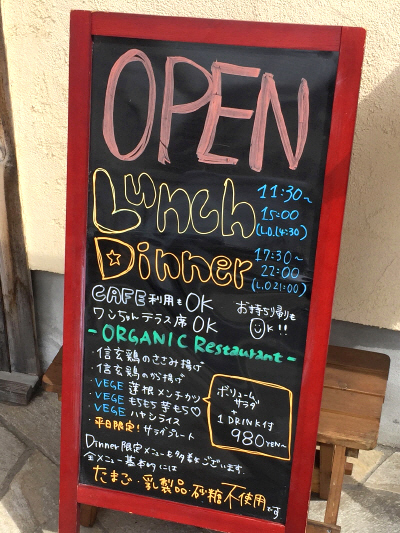 OPEN
Lunch 11:30~
15:00
(L.O.14:30)
Dinner 17:30~
22:00
(L.O 21:00)
CAFE利用もOK
お持ち帰りも
OK!!
ワンちゃんテラス席OK
- ORGANIC Restaurant -
・信玄鶏のささみ揚げ
・信玄鶏のから揚げ
・VEGE 蓮根メンチカツ
・VEGE もちもち芋もち♡
・VEGE ハヤシライス
・平日限定! サラダプレート
ボリューム
サラダ
+
1 DRINK付
980YEN~
Dinner限定メニューも多数ございます.
全メニュー基本的には
たまご・乳製品・砂糖不使用です